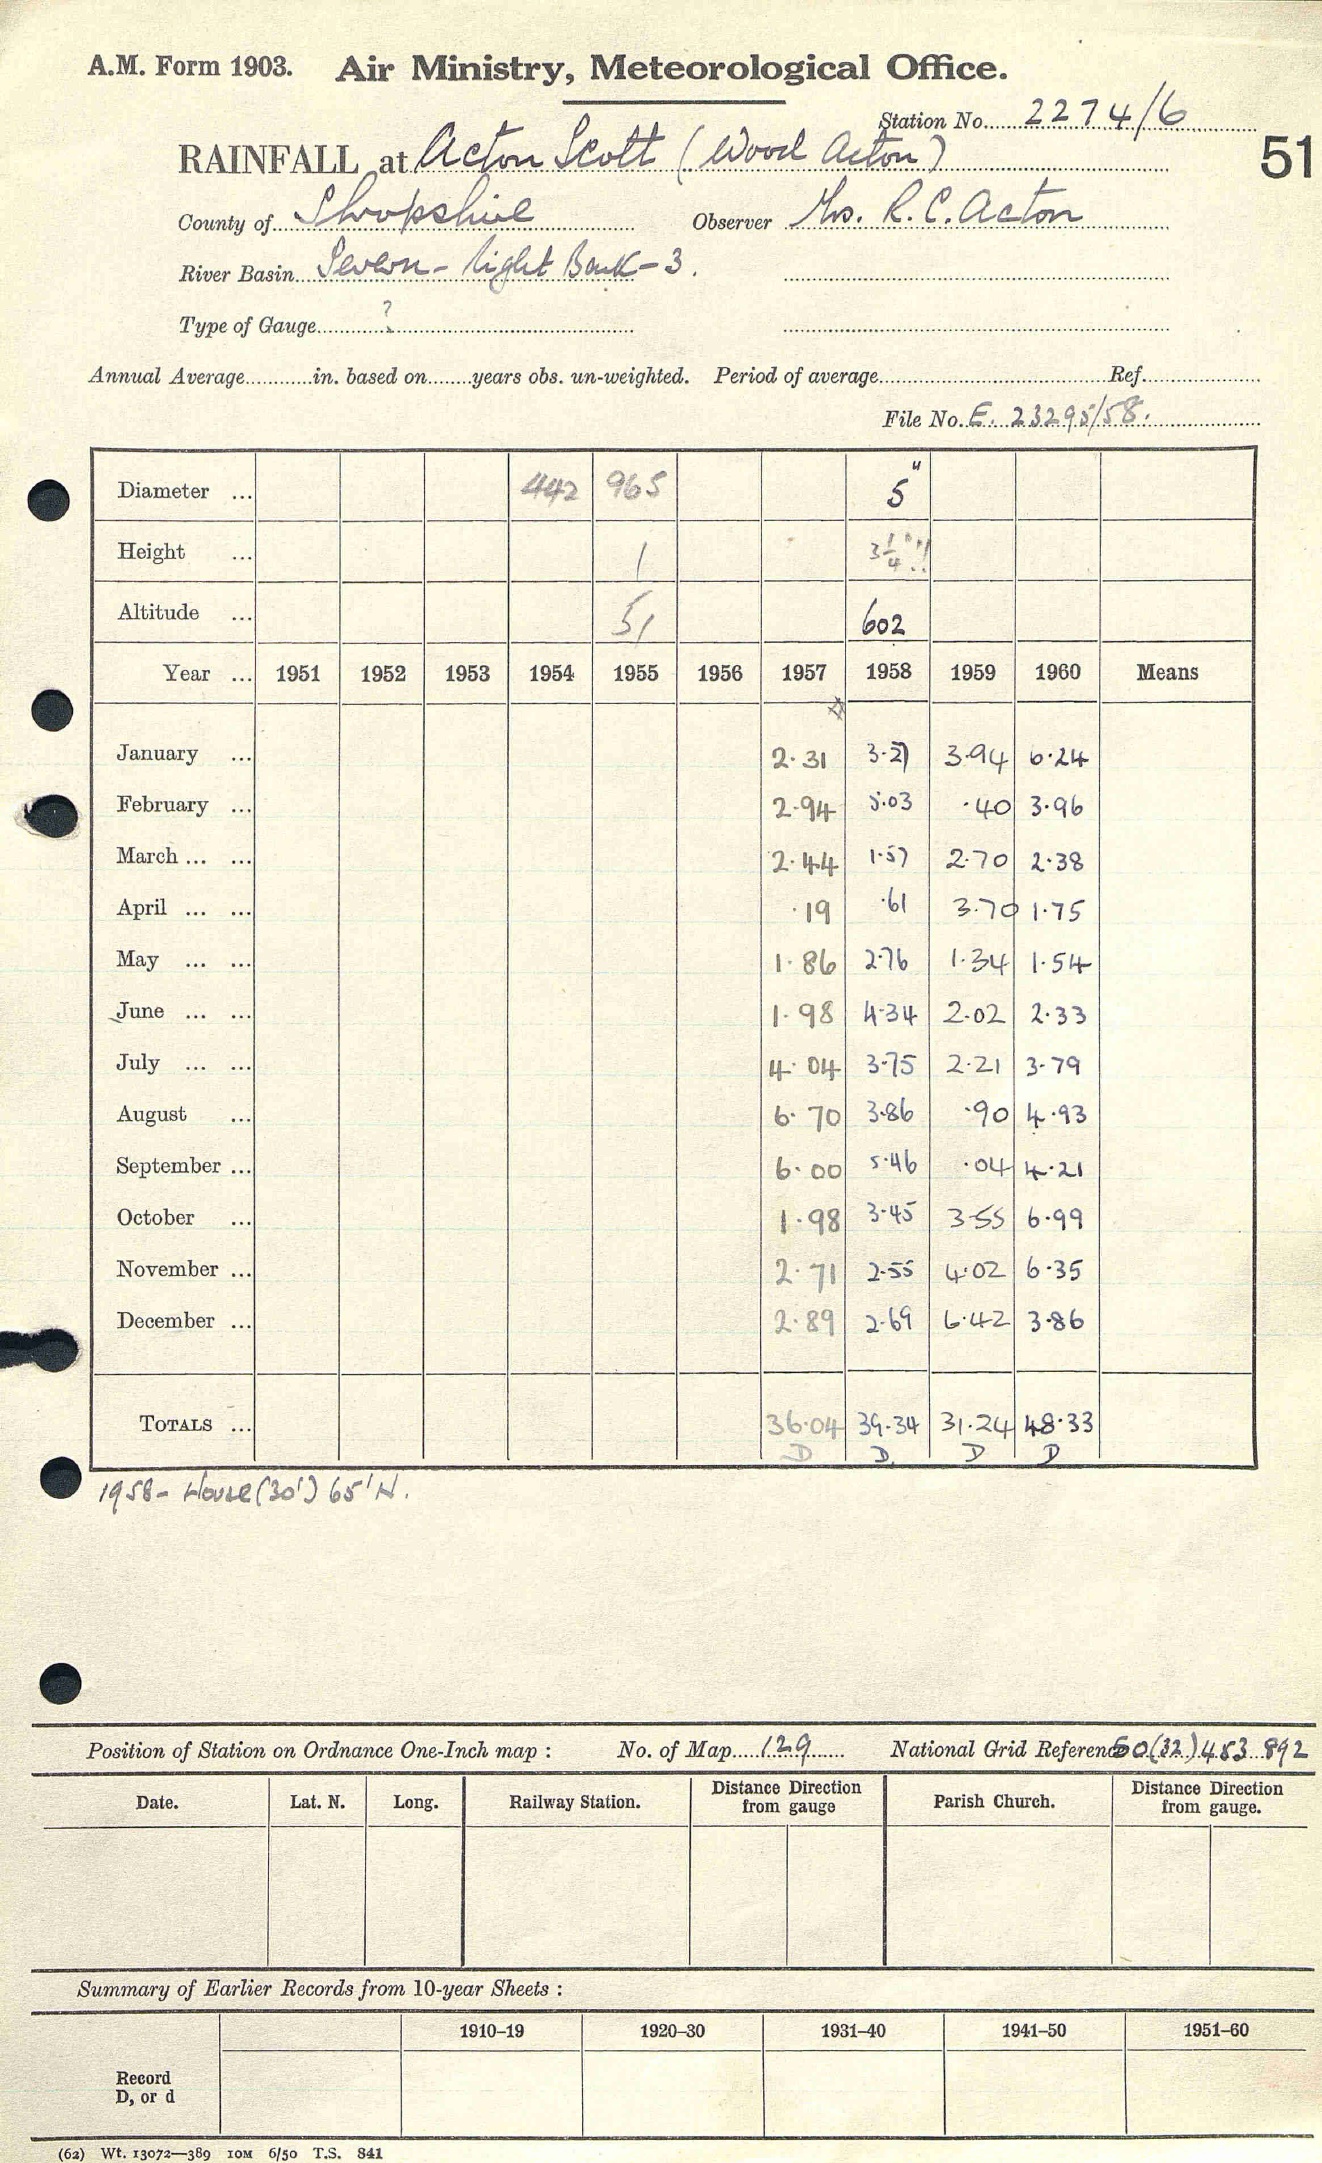 A.M. Form 1903. Air Ministry, Meteorological Office.
Station No. 2274/6
RAINFALL at Acton Scott (Wood Acton)
51
County of Shropshire Observer Mrs. R. C. Acton
River Basin Severn - Right Bank - 3.
Type of Gauge ?
Annual Average in. based on years obs. un-weighted. Period of average Ref.
File No. E. 23295/58.
Diameter ... 442 965 5"
Height ... 1 3¼"!!
Altitude ... 51 602
Year ... 1951 1952 1953 1954 1955 1956 1957 1958 1959 1960 Means
January ... 2.31 3.27 3.94 6.24
February ... 2.94 5.03 .40 3.96
March ... ... 2.44 1.57 2.70 2.38
April ... ... .19 .61 3.70 1.75
May ... ... 1.86 2.76 1.34 1.54
June ... ... 1.98 4.34 2.02 2.33
July ... ... 4.04 3.75 2.21 3.79
August ... 6.70 3.86 .90 4.93
September ... 6.00 5.46 .04 4.21
October ... 1.98 3.45 3.55 6.99
November ... 2.71 2.55 4.02 6.35
December ... 2.89 2.69 6.42 3.86
TOTALS ... 36.04 39.34 31.24 48.33
D D D D
1958 - House (30') 65' N.
Position of Station on Ordnance One-Inch map : No. of Map 129 National Grid Reference 50(32) 453 892
Date. Lat. N. Long. Railway Station. Distance Direction from gauge Parish Church. Distance Direction from gauge.
Summary of Earlier Records from 10-year Sheets :
1910–19 1920–30 1931–40 1941–50 1951–60
Record
D, or d
(62) Wt. 13072—389 10M 6/50 T.S. 841